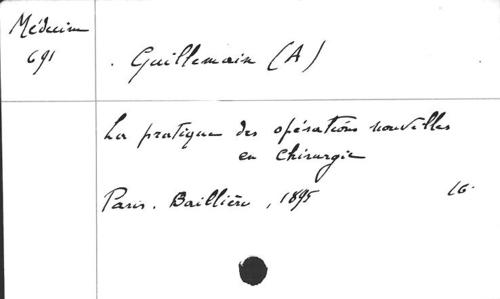 Médecine
691
Guillemain (A)
La pratique des opérations nouvelles
en Chirurgie
Paris. Baillière, 1895
16.